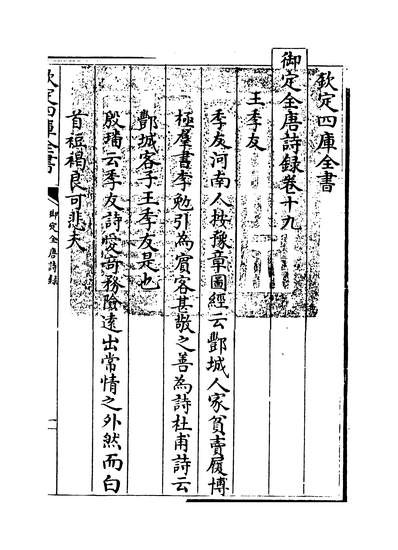 欽定四庫全書
御定全唐詩録卷十九
王季友
季友河南人按豫章圖經云酆城人家貧賣履博
極羣書李勉引為賔客甚敬之善為詩杜甫詩云
酆城客子王季友是也
殷璠云季友詩愛竒務險遠出常情之外然而白
首短褐良可悲夫
欽定四庫全書
御定全唐詩録